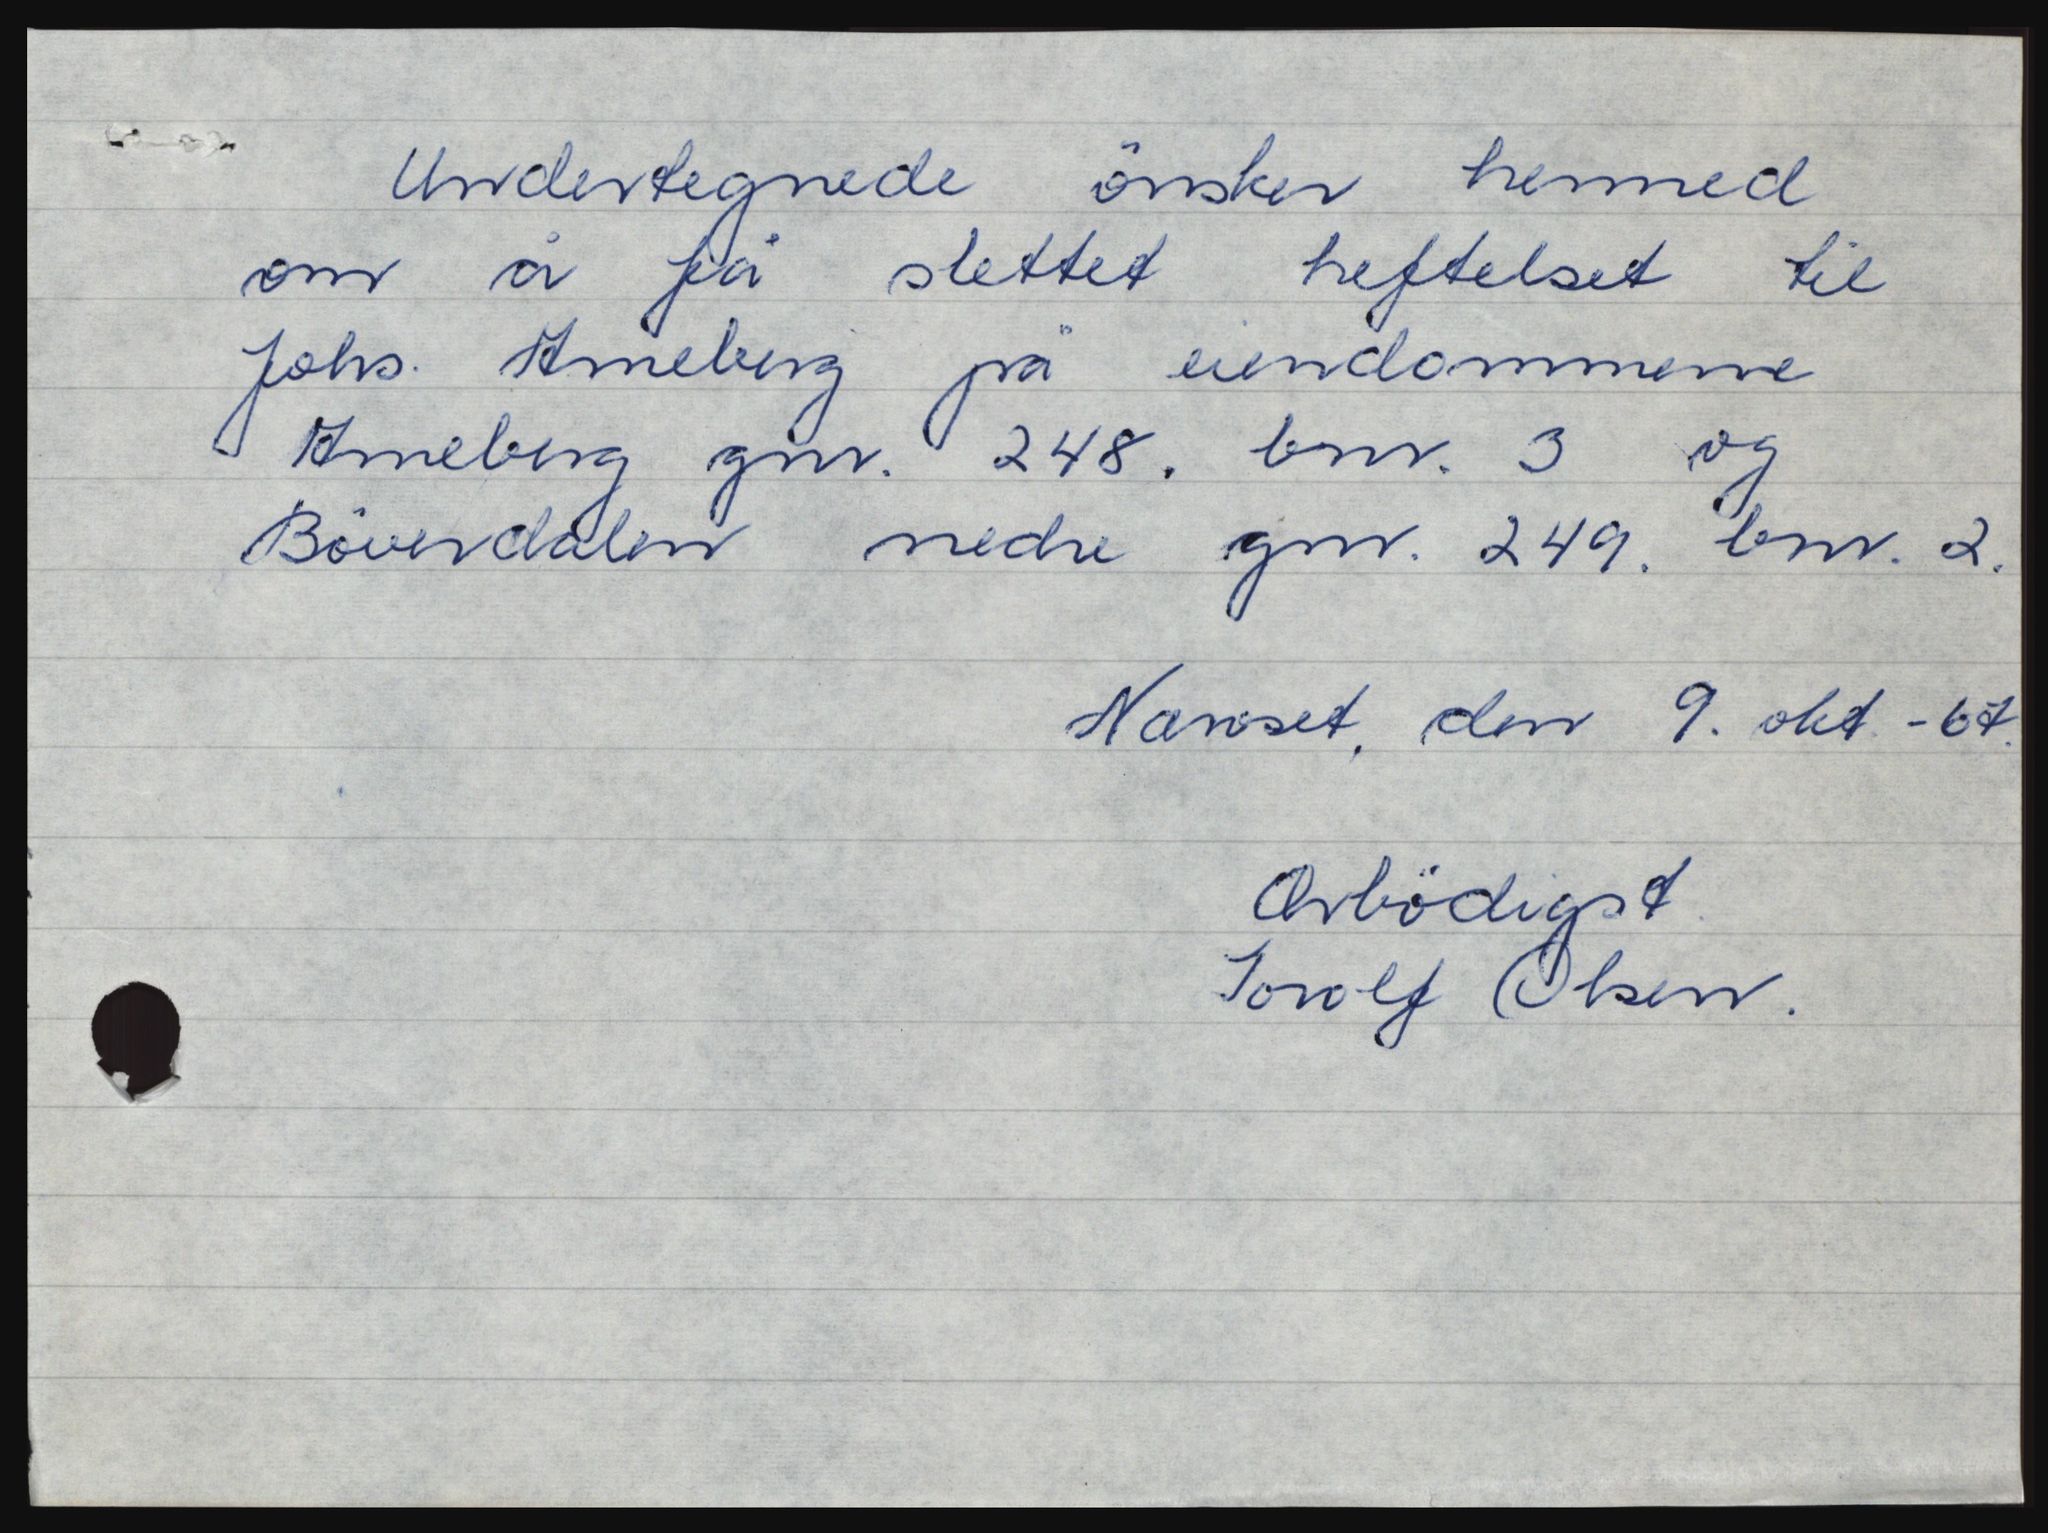 Undertegnede önsker hermed
om å få slettet heftelset til
Johs. Arneberg på eiendommene
Arneberg gnr. 248. bnr. 3 og
Böverdalen nedre gnr. 249. bnr. 2.
Næroset, den 9. okt -67.
Ærbödigst
Torolf Olsen.